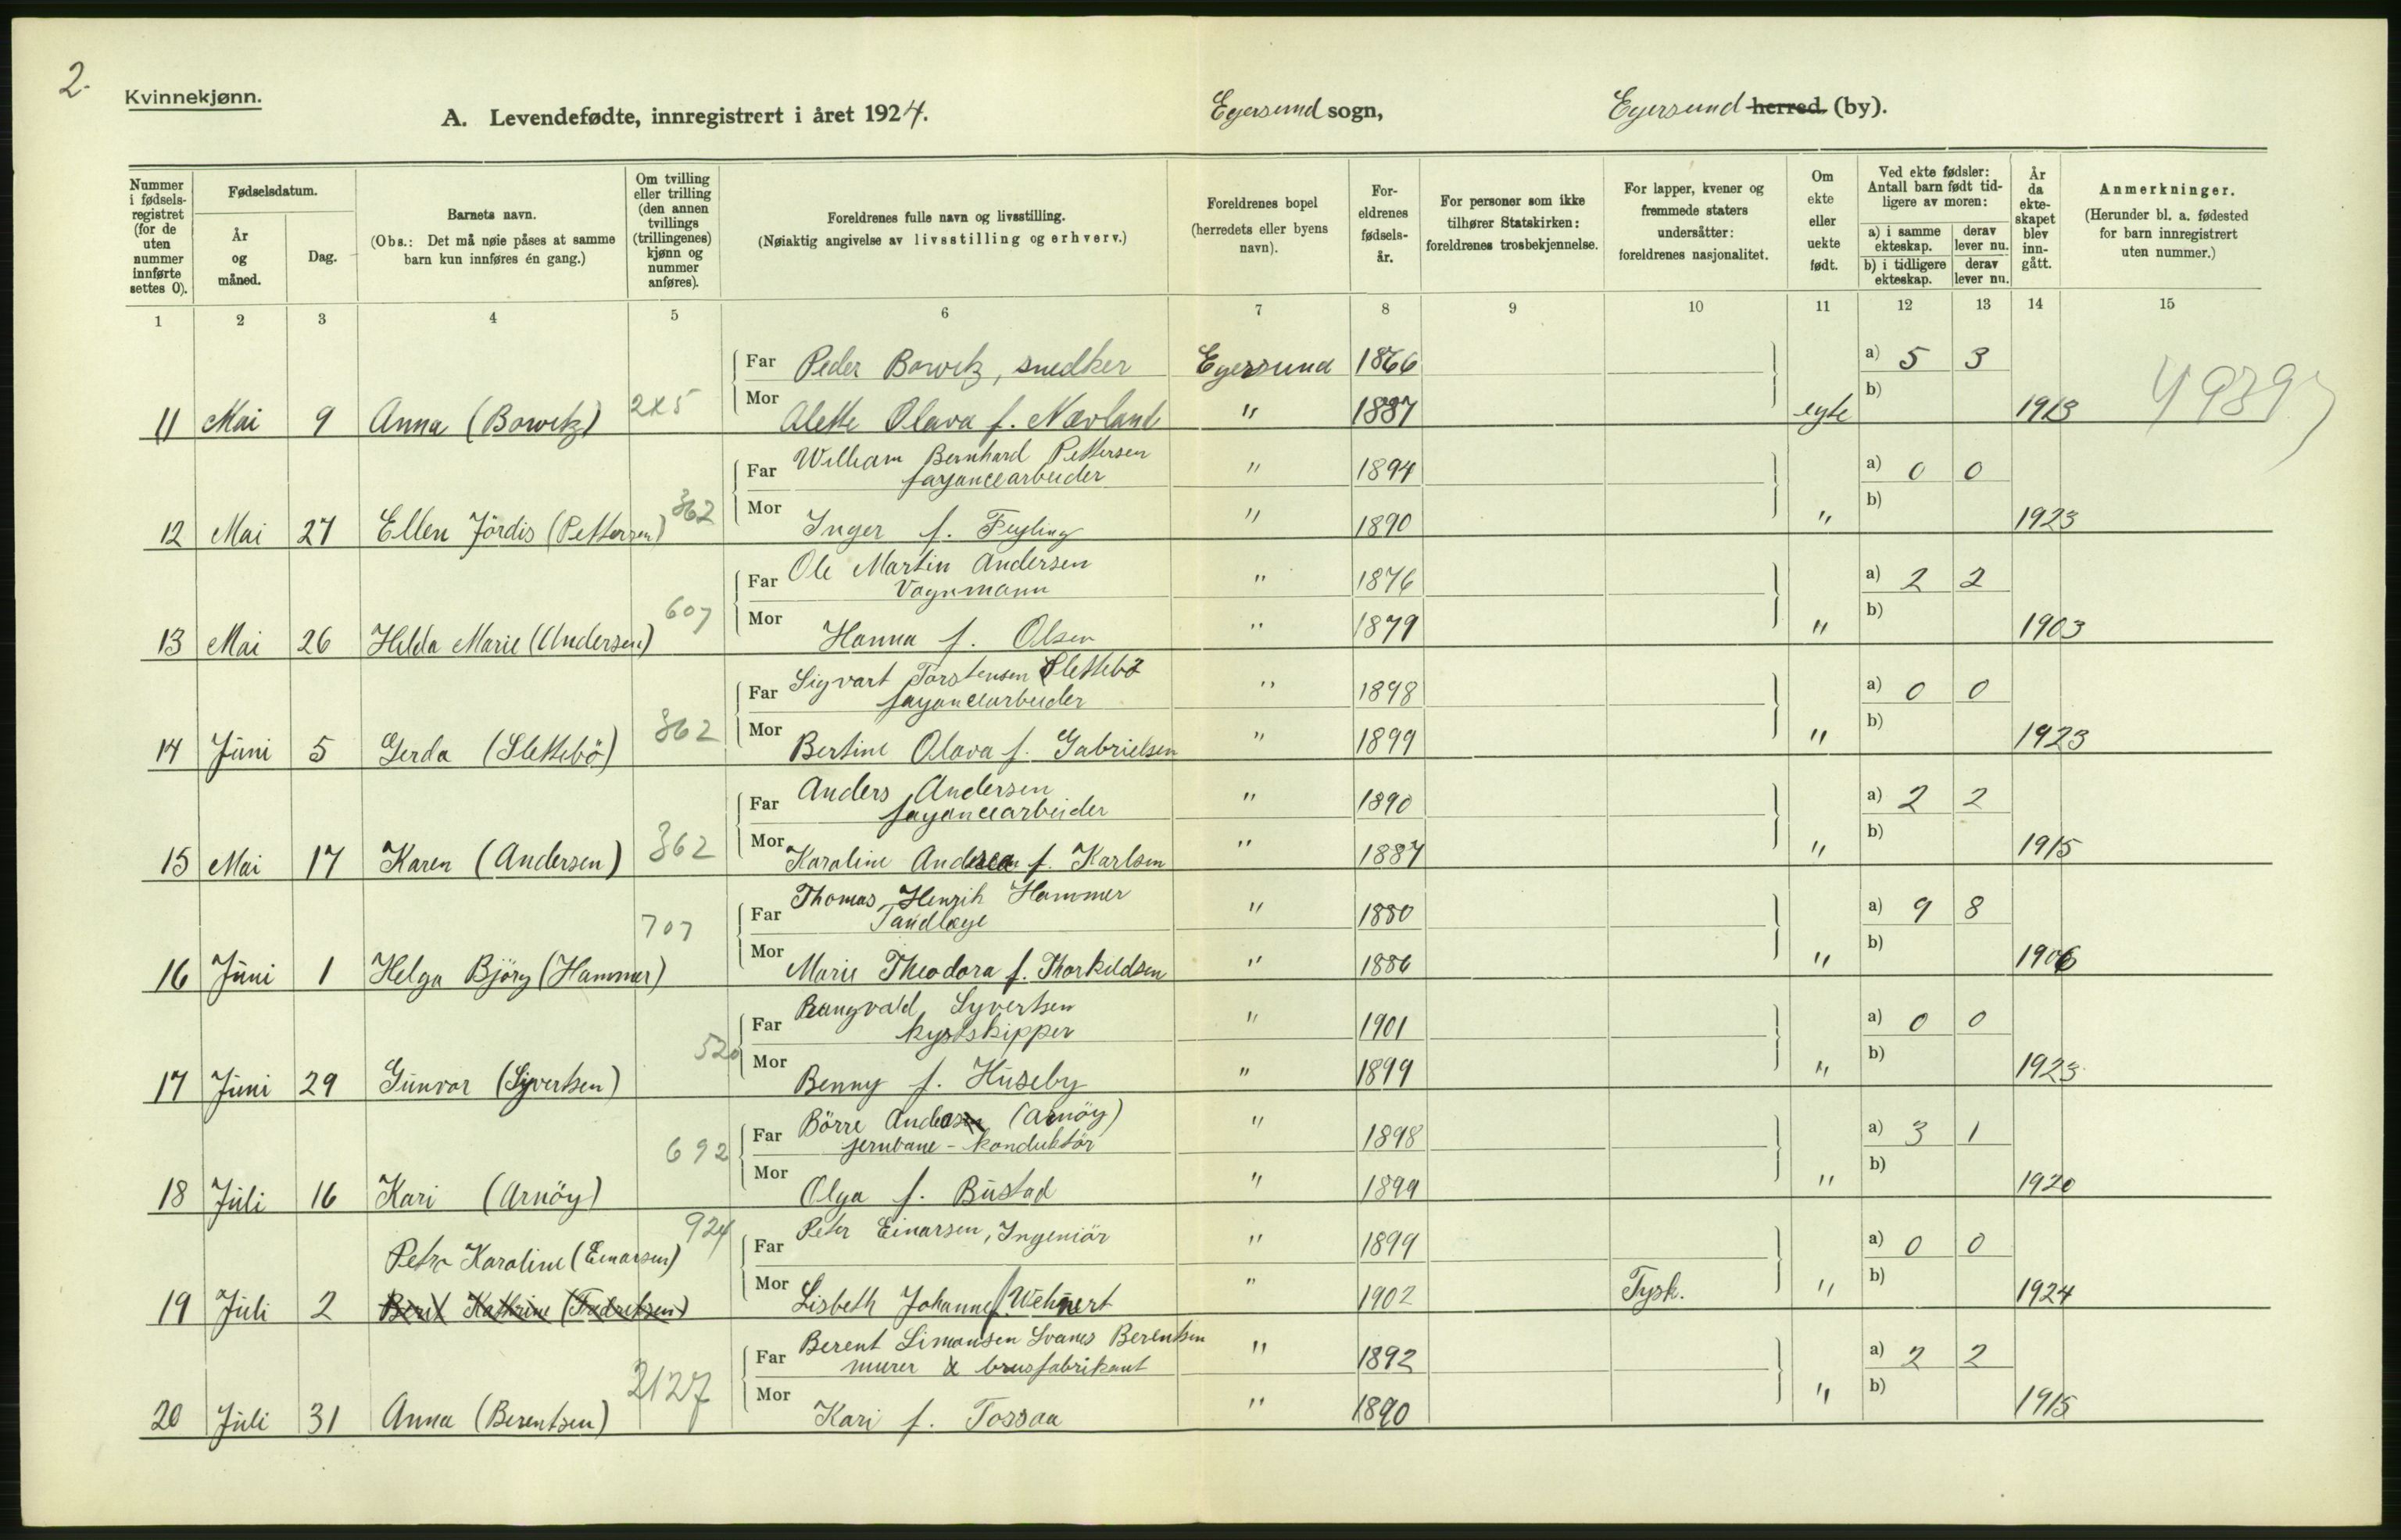 2.
Kvinnekjønn.
A. Levendefødte, innregistrert i året 1924.
Egersund sogn,
Egersund herred (by).
Nummer i fødselsregistret (for de uten nummer innførte settes 0).
Fødselsdatum.
År og måned.
Dag.
Barnets navn.
(Obs.: Det må nøie påses at samme barn kun innføres én gang.)
Om tvilling eller trilling (den annen tvillings (trillingenes) kjønn og nummer anføres).
Foreldrenes fulle navn og livsstilling.
(Nøiaktig angivelse av livsstilling og erhverv.)
Foreldrenes bopel (herredets eller byens navn).
Foreldrenes fødselsår.
For personer som ikke tilhører Statskirken: foreldrenes trosbekjennelse.
For lapper, kvener og fremmede staters undersåtter: foreldrenes nasjonalitet.
Om ekte eller uekte født.
Ved ekte fødsler: Antall barn født tidligere av moren:
a) i samme ekteskap.
derav lever nu.
b) i tidligere ekteskap.
derav lever nu.
År da ekteskapet blev inngått.
Anmerkninger.
(Herunder bl. a. fødested for barn innregistrert uten nummer.)
1 2 3 4 5 6 7 8 9 10 11 12 13 14 15
Far Peder Bowitz, snedker Egersund 1866 a) 5 3
11 Mai 9 Anna (Bowitz) 2x5 Mor Alette Olava f. Nævland " 1887 egte b) 1913
Far William Bernhard Pettersen " 1894 a) 0 0
fayancearbeider
12 Mai 27 Ellen Jördis (Pettersen) 362 Mor Inger f. Fugling " 1890 " b) 1923
Far Ole Martin Andersen " 1876 a) 2 2
Vognmann
13 Mai 26 Helda Marie (Andersen) 607 Mor Hanna f. Olsen " 1879 " b) 1903
Far Sigvart Torstensen Slettebö " 1898 a) 0 0
fayancearbeider
14 Juni 5 Gerda (Slettebö) 362 Mor Bertine Olava f. Gabrielsen " 1899 " b) 1923
Far Anders Andersen " 1890 a) 2 2
fayancearbeider
15 Mai 17 Karen (Andersen) 362 Mor Karoline Andrea f. Karlsen " 1887 " b) 1915
Far Thomas Henrik Hammer " 1880 a) 9 8
Tandlæge
16 Juni 1 Helga Björg (Hammer) 707 Mor Marie Theodora f. Thorkildsen " 1886 " b) 1906
Far Rangvald Syvertsen " 1901 a) 0 0
kystskipper
17 Juni 29 Gunvor (Syvertsen) 520 Mor Benny f. Huseby " 1899 " b) 1923
Far Börre Andeas (Arnöy) " 1898 a) 3 1
jernbane-konduktör
18 Juli 16 Kari (Arnöy) 692 Mor Olga f. Bustad " 1899 " b) 1920
Petra Karoline (Einarsen) 924 Far Peter Einarsen, Ingeniör " 1899 a) 0 0
19 Juli 2 Berit Kathrine (Fredriksen) Mor Lisbeth Johanne f. Wehnert " 1902 Tysk. " b) 1924
Far Berent Simonsen Svanes Berentsen " 1892 a) 2 2
murer & brusfabrikant
20 Juli 31 Anna (Berentsen) 2127 Mor Kari f. Tossaa " 1890 " b) 1915